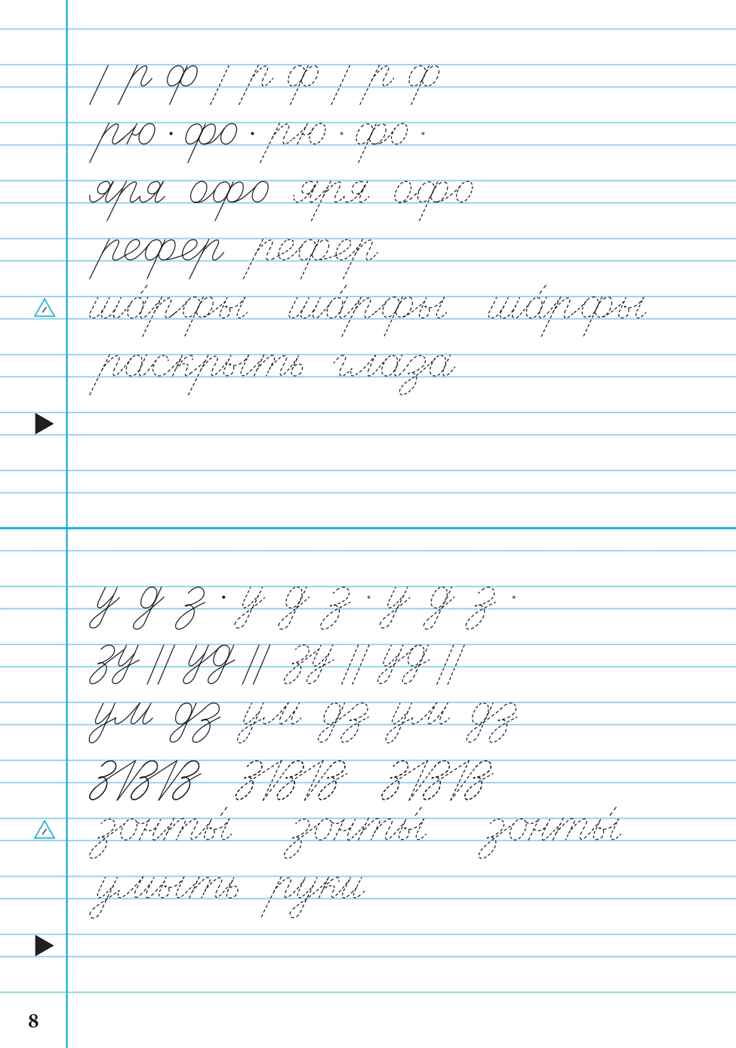 | р ф | р ф | р ф
рю · фо · рю · фо ·
яря офо яря офо
рефер рефер
ша́рфы ша́рфы ша́рфы
раскрыть глаза
у д з · у д з · у д з ·
зу || уд || зу || уд ||
ум дз ум дз ум дз
зонты́ зонты́ зонты́
умыть руки
8